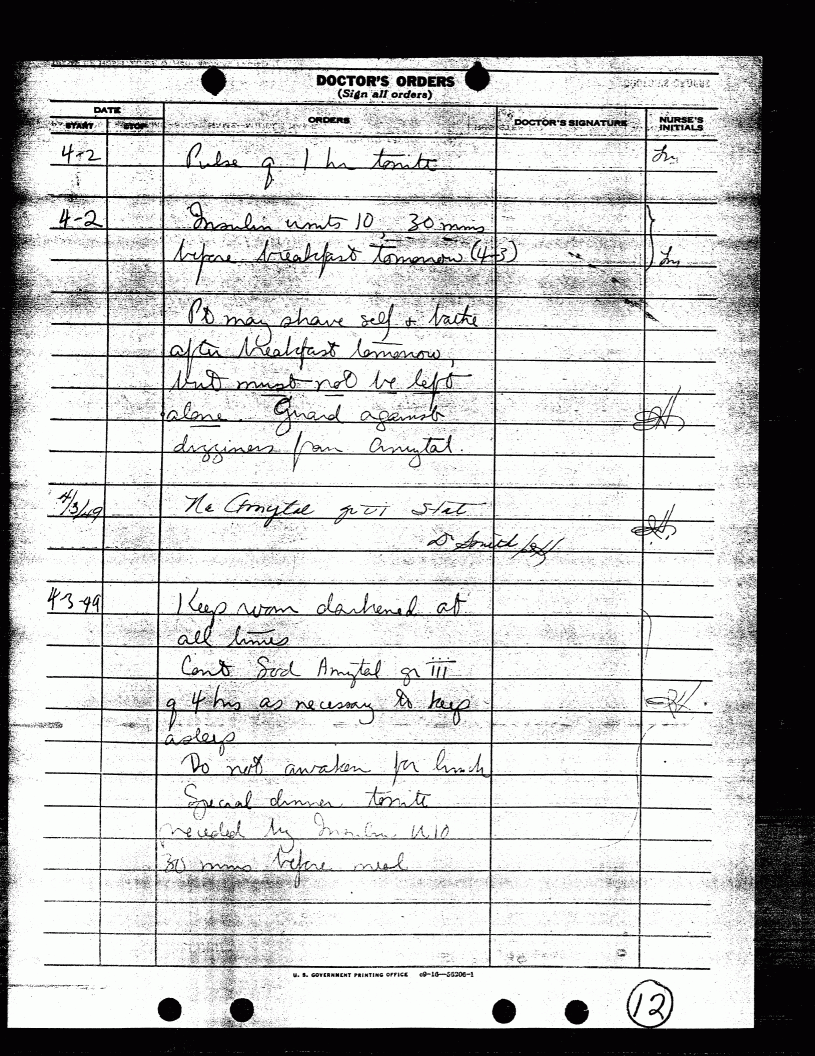 DOCTOR'S ORDERS
(Sign all orders)
DATE
START STOP ORDERS DOCTOR'S SIGNATURE NURSE'S INITIALS
4-2 Pulse q 1 hr tonite
4-2 Insulin units 10, 30 mins
before breakfast tomorrow (4-3)
Pt may shave self & bathe
after breakfast tomorrow,
but must not be left
alone. Guard against
dizziness from Amytal.
4/3/49 Na Amytal gr vi Stat
Dr Smith
4-3-49 Keep room darkened at
all times
Cont Sod Amytal gr iii
q 4 hrs as necessary to keep
asleep
Do not awaken for lunch
Special dinner tonite
preceded by Insulin U 10
30 mins before meal
U. S. GOVERNMENT PRINTING OFFICE c9-16—55206-1
12